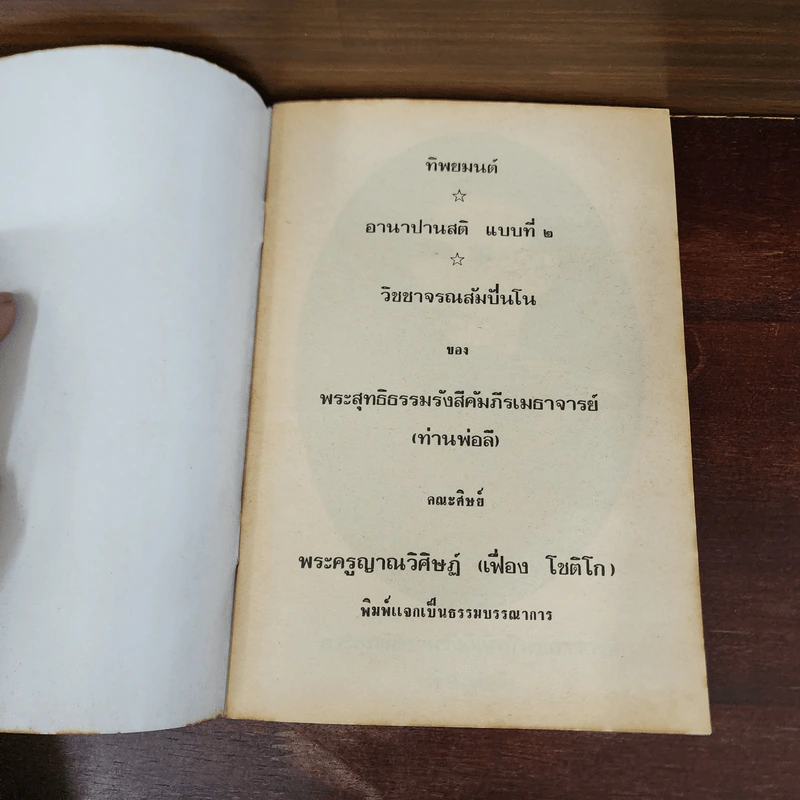 ทิพยมนต์
☆
อานาปานสติ แบบที่ ๒
☆
วิชชาจรณสัมปันโน
ของ
พระสุทธิธรรมรังสีคัมภีรเมธาจารย์
(ท่านพ่อลี)
คณะศิษย์
พระครูญาณวิศิษฏ์ (เฟื่อง โชติโก)
พิมพ์แจกเป็นธรรมบรรณาการ